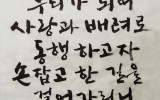 우리가 되어
사랑과 배려로
동행하고자
손잡고 한 길을
걸어가리니